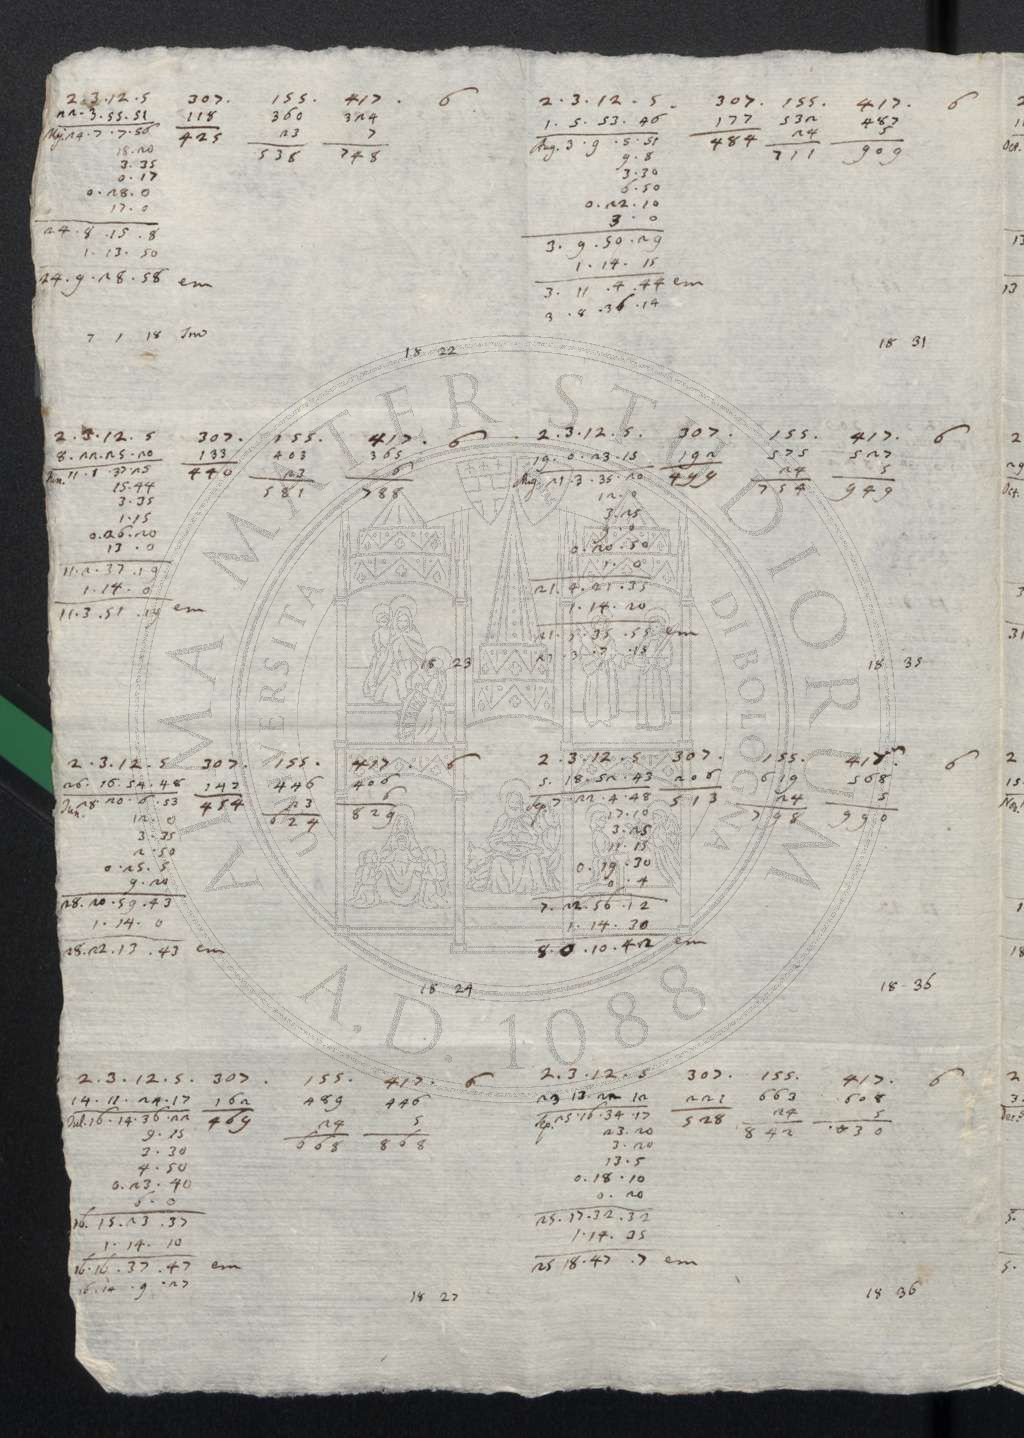 2.3.12.5 307. 155. 417. 6
22.3.55.51 118 360 324
Maj. 24.7.7.56 425 23 7
18.20 538 748
3.35
0.17
0.28.0
17.0
24.8.15.8
1.13.50
24.9.28.58 em
7 1 18 Imo
18 22
2.3.12.5. 307. 155. 417. 6
1.5.53.46 177 532 487
Aug. 3.9.5.51 484 24 5
9.8 711 909
3.30
6.50
0.22.10
3.0
3.9.50.29
1.14.15
3.11.4.44 em
3.8.36.14
18 31
2.3.12.5 307. 155. 417. 6
8.22.25.20 133 403 365
Jun. 11.1.37.25 440 23 6
15.44 581 788
3.35
1.15
0.26.20
13.0
11.2.37.19
1.14.0
11.3.51.19 em
18 23
2.3.12.5. 307. 155. 417. 6
19.0.23.15 192 575 527
Aug. 21.3.35.20 499 24 5
12.0 754 949
3.25
9.0
0.20.50
1.0
21.4.21.35
1.14.20
21.5.35.55 em
18 35
2.3.12.5 307. 155. 417. 6
26.16.54.48 147 446 406
Jun. 28.20.6.53 454 23 6
12.0 624 829
3.35
2.50
0.25.5
9.20
28.20.59.43
1.14.0
28.22.13.43 em
18 24
2.3.12.5 307. 155. 417. 6
5.18.52.43 206 619 568
Sep. 7.22.4.48 513 24 5
17.10 798 990
3.25
11.15
0.19.30
0.4
7.22.56.12
1.14.30
8.0.10.42 em
18 36
2.3.12.5. 307. 155. 417. 6
14.11.24.17 162 489 446
Jul. 16.14.36.22 469 24 5
9.15 668 868
3.30
4.50
0.23.40
6.0
16.15.23.37
1.14.10
16.16.37.47 em
16.14.9.27
18 27
2.3.12.5 307. 155. 417. 6
23.13.22.12 221 663 608
Sep. 25.16.34.17 528 24 5
23.20 842 030
3.20
13.5
0.18.10
0.20
25.17.32.32
1.14.35
25 18.47.7 em
18 36
ALMA MATER STUDIORUM
UNIVERSITÀ DI BOLOGNA
A.D. 1088